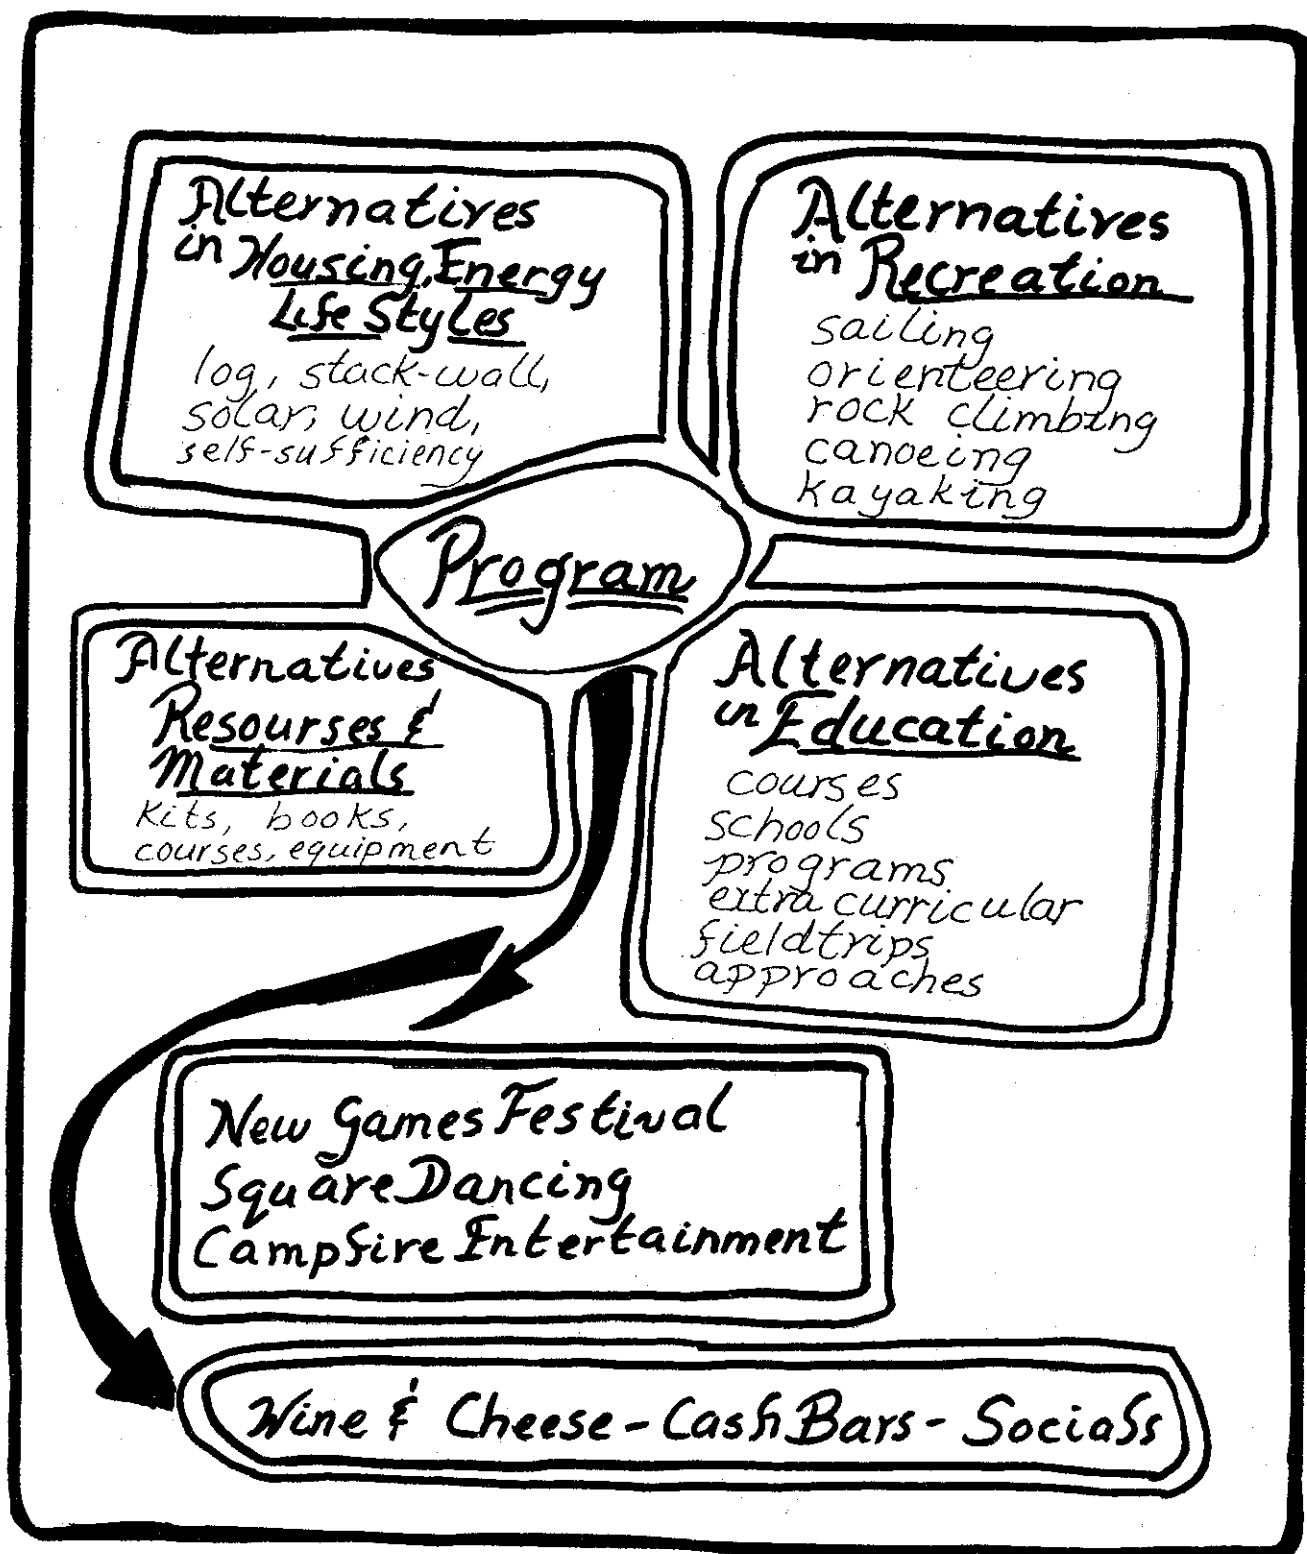 Alternatives
in Housing, Energy
Life Styles
log, stack-wall,
solar, wind,
self-sufficiency
Alternatives
in Recreation
sailing
orienteering
rock climbing
canoeing
kayaking
Program
Alternatives
Resourses &
Materials
Kits, books,
courses, equipment
Alternatives
in Education
courses
schools
programs
extra curricular
fieldtrips
approaches
New Games Festival
Square Dancing
Campfire Entertainment
Wine & Cheese - Cash Bars - Socials